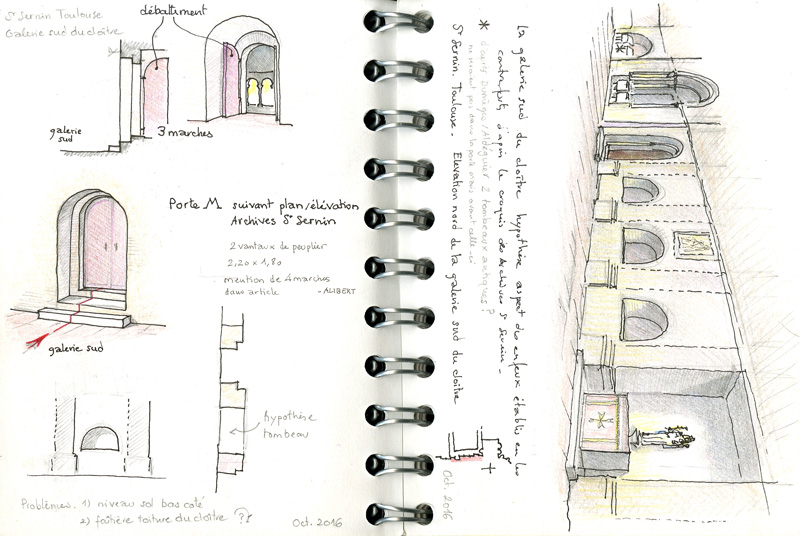 St Sernin Toulouse
Galerie sud du cloître
débattement
galerie
sud
3 marches
Porte M. suivant plan/élévation
Archives St Sernin
2 vantaux de peuplier
2,20 x 1,80
mention de 4 marches
dans article - ALIBERT
galerie sud
hypothèse
tombeau
Problèmes. 1) niveau sol bas coté
2) faîtière toiture du cloître ?
Oct. 2016
La galerie sud du cloître hypothèse aspect des enfeux établis en les
contreforts d'après le croquis des Archives St Sernin -
* d'après Dumège/Aldéguier 2 tombeaux antiques ?
dans la porte mais avant celle-ci
St Sernin. Toulouse. Elevation nord de la galerie sud du cloître
Oct. 2016